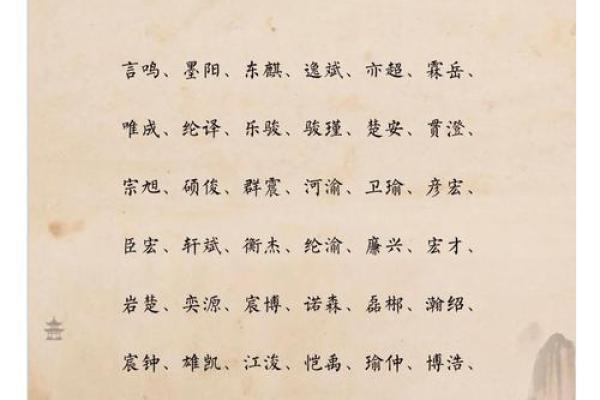 言鸣、墨阳、东麒、逸斌、亦超、霖岳、
唯成、纶译、乐骏、骏瑾、楚安、贯澄、
宗旭、硕俊、群震、河渝、卫瑜、彦宏、
臣宏、轩斌、衡杰、纶渝、廉兴、宏才、
岩楚、奕源、宸博、诺森、磊郴、瀚绍、
宸钟、雄凯、江浚、恺禹、瑜仲、博浩、